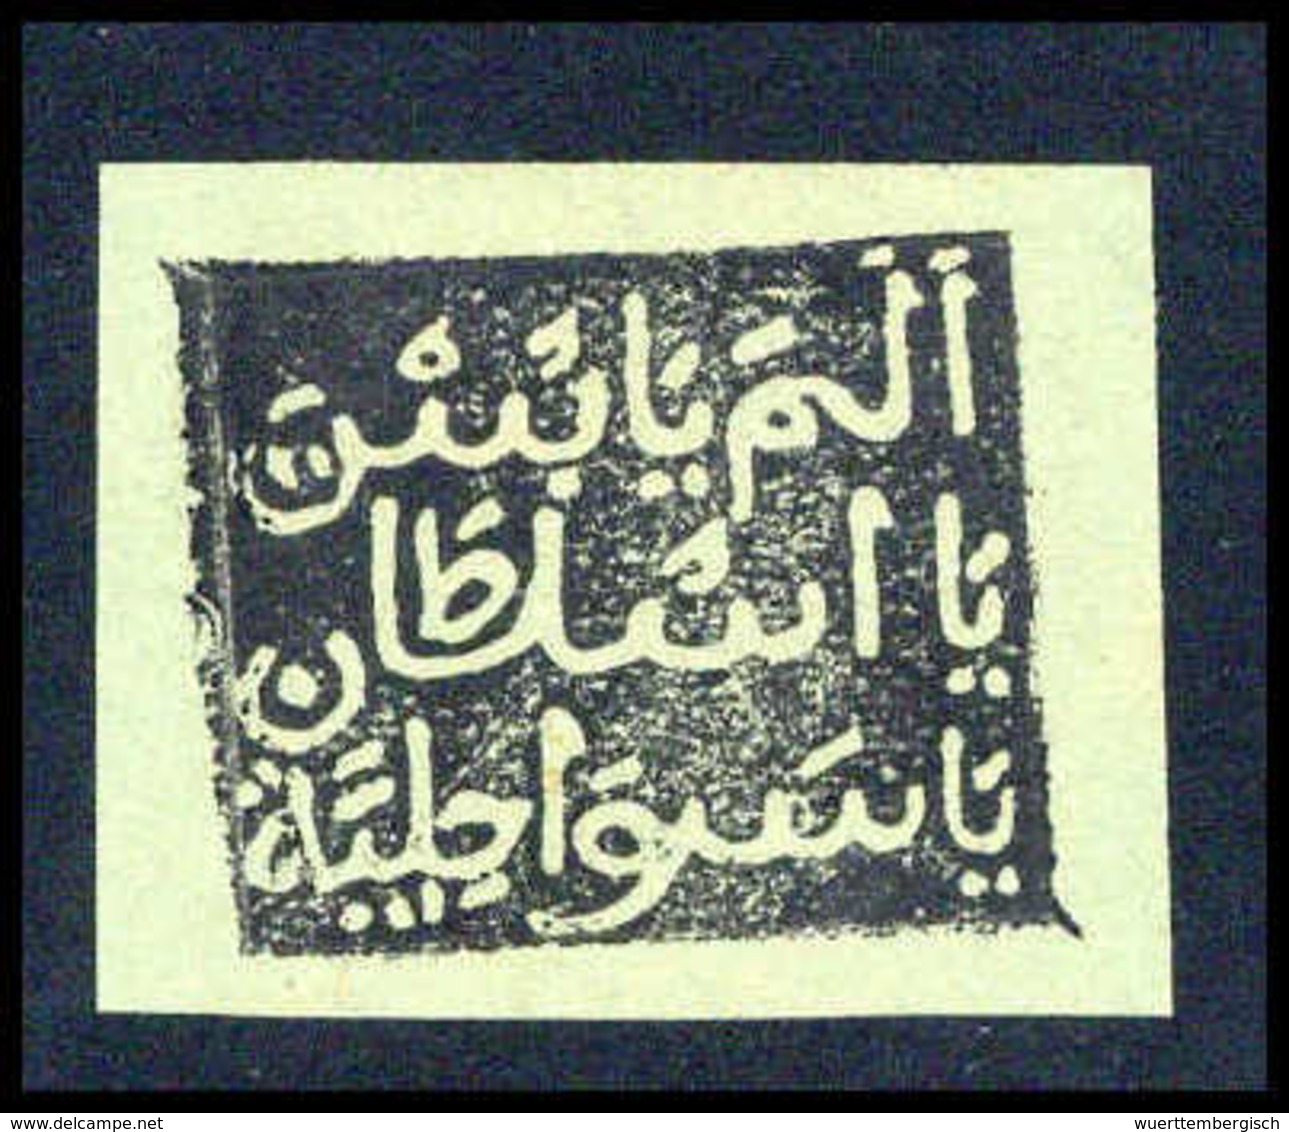 اَلَمَ يَا بِسْتَ
يَا اسُلطَان
يَا سَوَاحِلِيَة
www.delcampe.net
wuerttembergisch